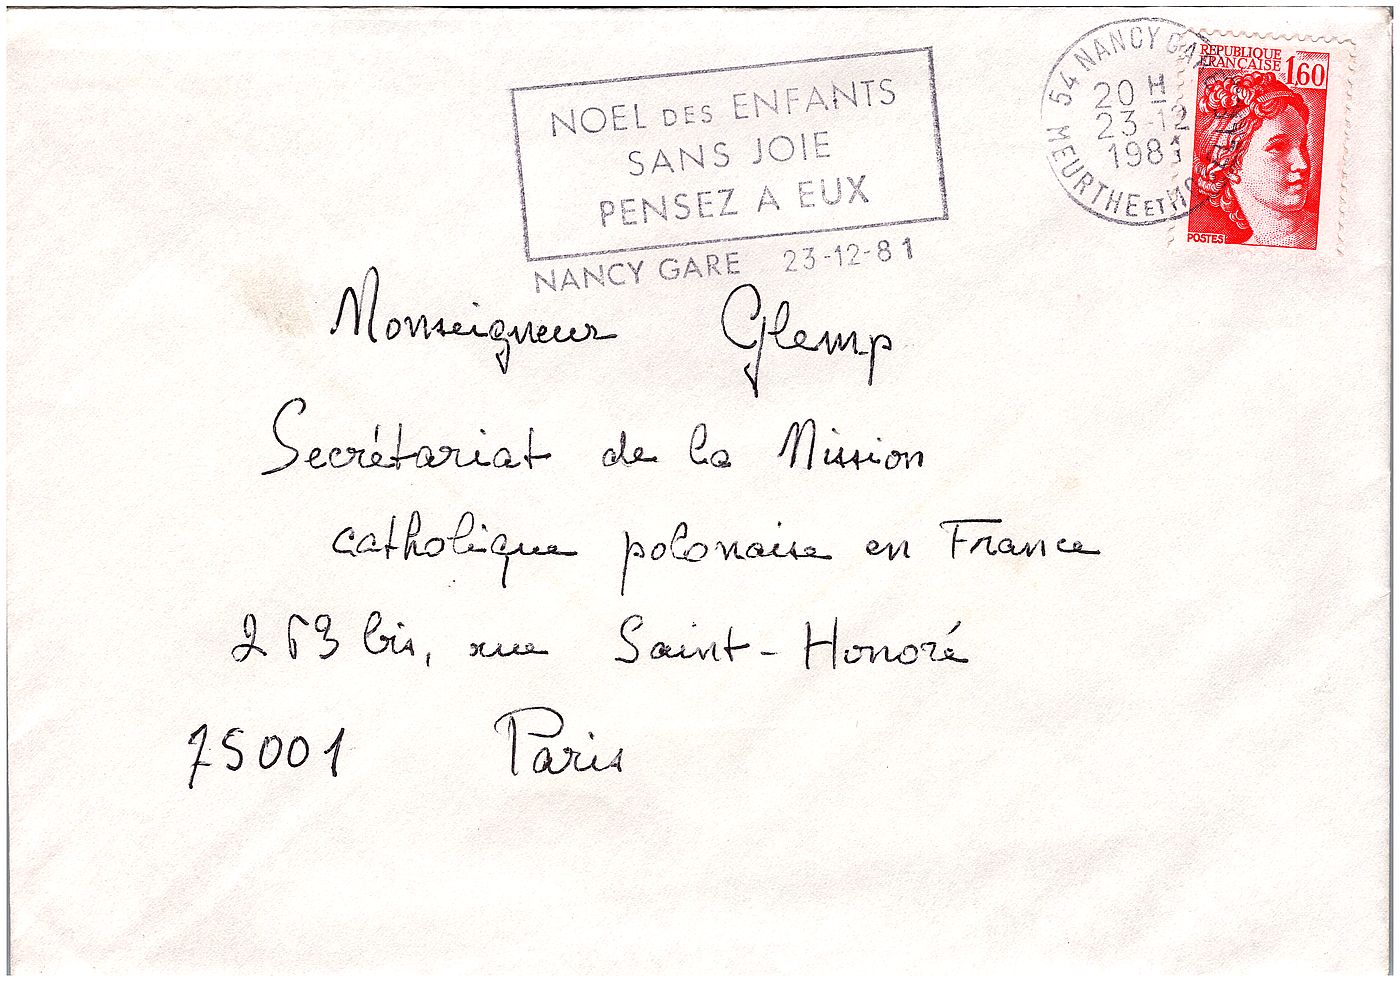 NOEL DES ENFANTS
SANS JOIE
PENSEZ A EUX
NANCY GARE 23-12-81
54 NANCY GARE
20 H
23-12
1981
MEURTHE ET MO
REPUBLIQUE
FRANCAISE 1,60
POSTES
Monseigneur Glemp
Secrétariat de la Mission
catholique polonaise en France
263 bis, rue Saint-Honoré
75001 Paris